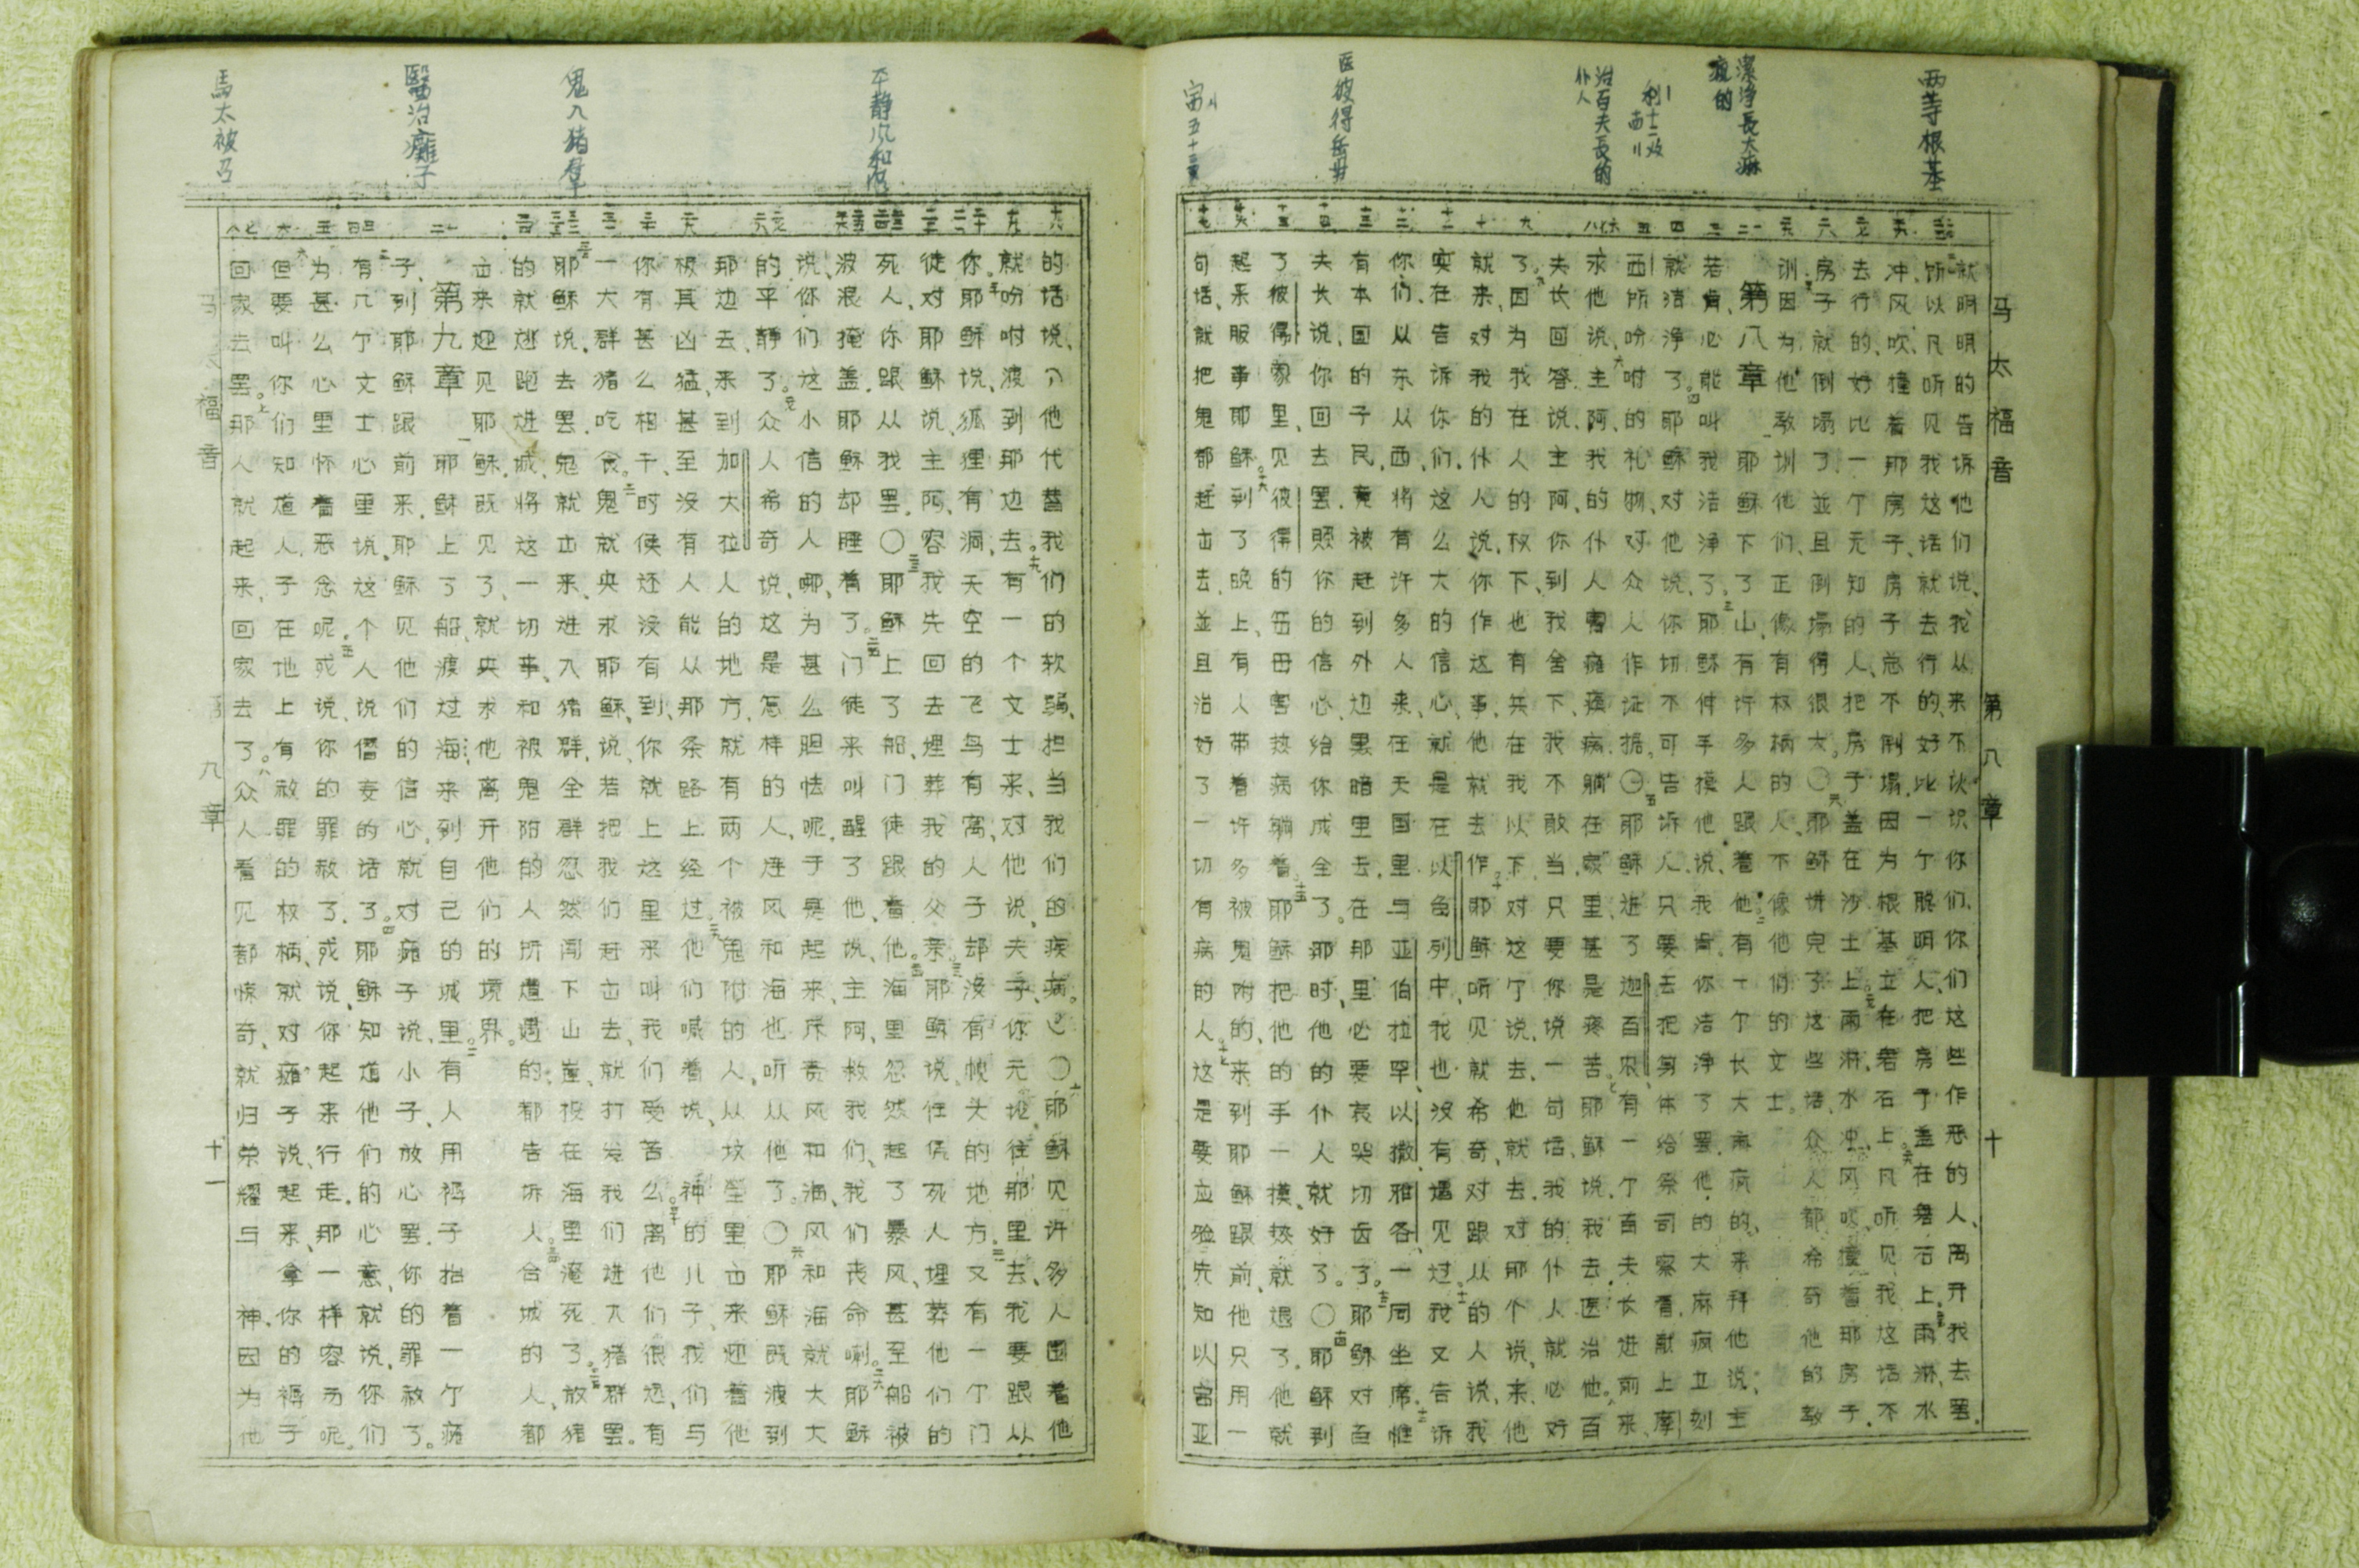 两等根基
潔淨長大痲瘋的
治百夫長的仆人
医彼得岳母
马太福音 第八章 十
就明明的告诉他们说、我从来不认识你们、你们这些作恶的人、离开我去罢。
所以凡听见我这话就去行的、好比一个聪明人、把房子盖在磐石上、雨淋、水
冲、风吹、撞着那房子、房子总不倒塌、因为根基立在磐石上。凡听见我这话不
去行的、好比一个无知的人、把房子盖在沙土上。雨淋、水冲、风吹、撞着那房子、
房子就倒塌了、並且倒塌得很大。〇耶稣讲完了这些话、众人都希奇他的教
训、因为他教训他们、正像有权柄的人、不像他们的文士。
第八章 耶稣下了山、有许多人跟着他。有一个长大麻疯的、来拜他说、主
若肯、必能叫我洁净了。耶稣伸手摸他说、我肯、你洁净了罢、他的大麻疯立刻
就洁净了。耶稣对他说、你切不可告诉人、只要去把身体给祭司察看、献上摩
西所吩咐的礼物、对众人作证据。〇耶稣进了迦百农、有一个百夫长进前来、
求他说、主阿、我的仆人害瘫痪病、躺在家里、甚是疼苦。耶稣说、我去医治他。百
夫长回答说、主阿、你到我舍下、我不敢当、只要你说一句话、我的仆人就必好
了。因为我在人的权下、也有兵在我以下、对这个说去、他就去、对那个说来、他
就来、对我的仆人说、你作这事、他就去作。耶稣听见就希奇、对跟从的人说、我
实在告诉你们、这么大的信心、就是在以色列中、我也没有遇见过。我又告诉
你们、从东从西、将有许多人来、在天国里与亚伯拉罕、以撒、雅各、一同坐席、惟
有本国的子民、竟被赶到外边黑暗里去、在那里必要哀哭切齿了。耶稣对百
夫长说、你回去罢、照你的信心、给你成全了。那时、他的仆人就好了。〇耶稣到
了彼得家里、见彼得的岳母害热病躺着。耶稣把他的手一摸、热就退了。他就
起来服事耶稣。到了晚上、有人带着许多被鬼附的、来到耶稣跟前、他只用一
句话、就把鬼都赶出去、並且治好了一切有病的人。这是要应验先知以赛亚
平静风和海
鬼入猪群
醫治癱子
馬太被召
的话说、他代替我们的软弱、担当我们的疾病。〇耶稣见许多人围着他
就吩咐渡到那边去。有一个文士来、对他说、夫子、你无论往那里去、我要跟从
你。耶稣说、狐狸有洞、天空的飞鸟有窝、人子却没有枕头的地方。又有一个门
徒对耶稣说、主阿、容我先回去埋葬我的父亲。耶稣说、任凭死人埋葬他们的
死人、你跟从我罢。〇耶稣上了船、门徒跟着他。海里忽然起了暴风、甚至船被
波浪掩盖、耶稣却睡着了。门徒来叫醒了他、说、主阿、救我们、我们丧命喇。耶稣
说、你们这小信的人哪、为甚么胆怯呢、于是起来、斥责风和海、风和海就大大
的平静了。众人希奇说、这是怎样的人、连风和海也听从他了。〇耶稣既渡到
那边去、来到加大拉人的地方、就有两个被鬼附的人、从坟茔里出来迎着他
极其凶猛、甚至没有人能从那条路上经过。他们喊着说、神的儿子、我们与
你有甚么相干、时候还没有到、你就上这里来叫我们受苦么。离他们很远、有
一大群猪吃食。鬼就央求耶稣、说、若把我们赶出去、就打发我们进入猪群罢。
耶稣说、去罢、鬼就出来、进入猪群、全群忽然闯下山崖、投在海里淹死了。放猪
的就逃跑进城、将这一切事、和被鬼附的人所遭遇的、都告诉人。合城的人、都
出来迎见耶稣、既见了、就央求他离开他们的境界。
第九章 耶稣上了船、渡过海、来到自己的城里。有人用褥子抬着一个瘫
子、到耶稣跟前来、耶稣见他们的信心、就对瘫子说、小子、放心罢、你的罪赦了。
有几个文士心里说、这个人说僭妄的话了。耶稣知道他们的心意、就说、你们
为甚么心里怀着恶念呢。或说、你的罪赦了、或说、你起来行走、那一样容易呢。
但要叫你们知道人子在地上有赦罪的权柄、就对瘫子说、起来、拿你的褥子
回家去罢。那人就起来、回家去了。众人看见都惊奇、就归荣耀与 神、因为他
马太福音 第九章 十一